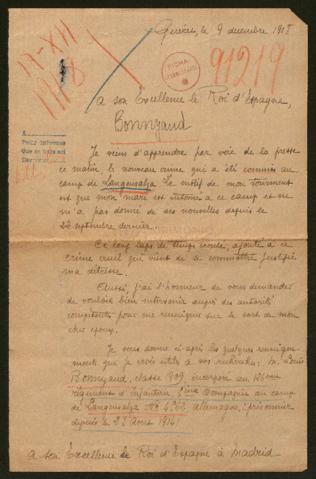 17-XII
1918
Genève, le 9 décembre 1918
FICHA
91219
A son Excellence le Roi d'Espagne,
Bonnyaud
A
Petit informes
Que se haga así
Je viens d'apprendre par voie de la presse
ce matin le nouveau crime qui a été commis au
camp de Langensalza. Le motif de mon tourment
est que mon mari est interné à ce camp et ne
m'a pas donné de ses nouvelles depuis le
septembre dernier.
Ce long laps de temps écoulé, ajouté à ce
crime cruel qui vient de se commettre justifie
ma détresse.
Aussi, j'ai l'honneur de vous demander
de vouloir bien intervenir auprès des autorités
compétentes pour me renseigner sur le sort de mon
cher époux.
Je vous donne ci-après les quelques renseigne-
ments que je crois utiles à vos recherches: M. Louis
Bonnyaud, classe 1909, incorporé au
régiment d'infanterie 5ème Compagnie au camp
de Langensalza No allemagne, (prisonnier
depuis le 23 Août 1914)
A son Excellence le Roi d'Espagne à Madrid